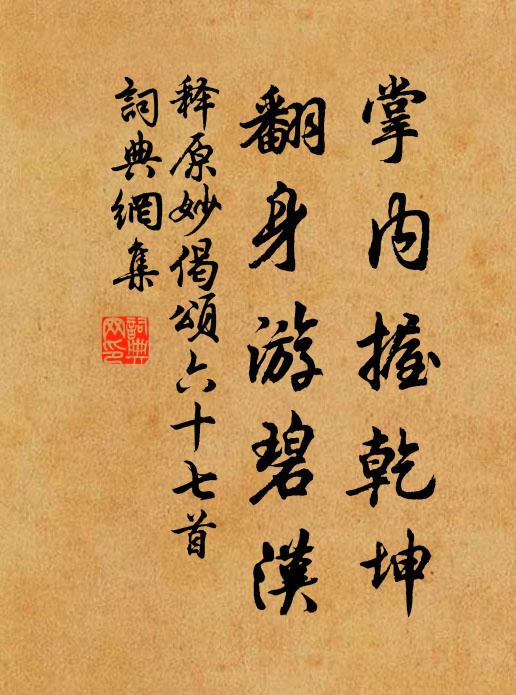 掌内握乾坤
翻身游碧漢
释原妙偈頌六十七首
詞典網集
詞典
网印